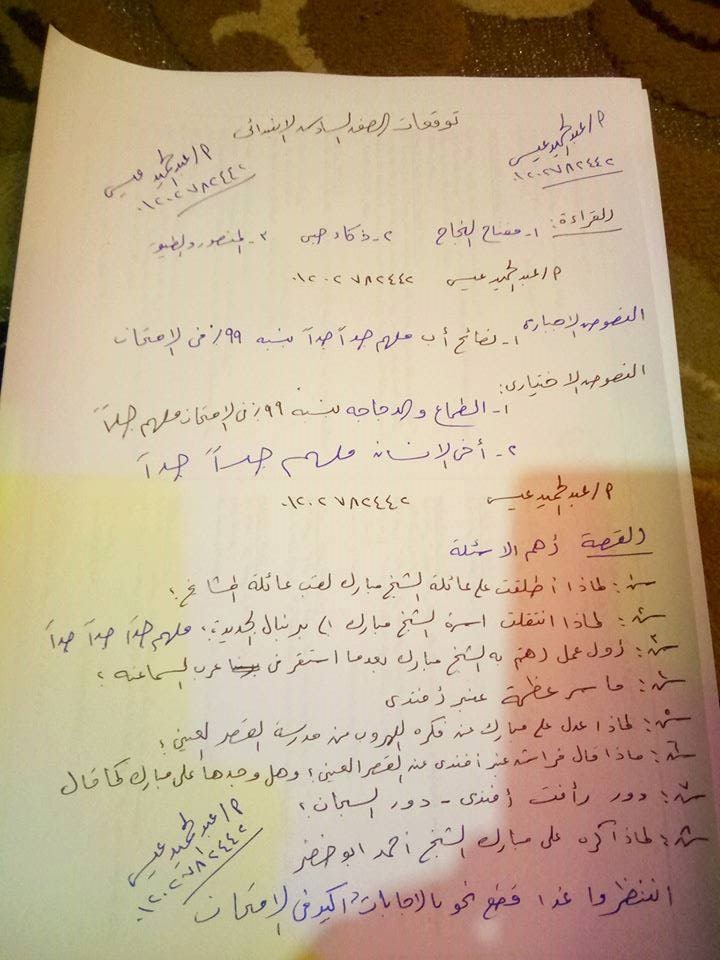 توقعات الصف السادس الابتدائى
م/عبدالحميد عيسى
٠١٢٠٢٧٨٢٤٤٢
م/عبدالحميد عيسى
٠١٢٠٢٧٨٢٤٤٢
القراءة: ١- مفتاح النجاح ٢- ذكاء صبى ٣- المنصور والطيور
م/عبدالحميد عيسى ٠١٢٠٢٧٨٢٤٤٢
النصوص الاجبارى
١- نصائح أب ملهم جداً جداً بنسبه ٩٩٪ فى الامتحان
النصوص الاختيارى:
١- الطماع والدجاجه بنسبه ٩٩٪ فى الامتحان ملهم جداً
٢- أخى الانسان ملهم جداً جداً
م/عبدالحميد عيسى ٠١٢٠٢٧٨٢٤٤٢
القصة أهم الاسئلة
س١: لماذا أطلقت على عائلة الشيخ مبارك لقب عائلة المشايخ؟
س٢: لماذا انتقلت اسرة الشيخ مبارك الى برنبال الجديدة؟ ملهم جداً جداً جداً
س٣: أول عمل اهتم به الشيخ مبارك بعدما استقر فى عرب السماعنه؟
س٤: ما سر عظمة عنبر أفندى
س٥: لماذا عدل على مبارك عن فكره الهروب من مدرسة القصر العينى؟
س٦: ماذا قال فراش عنبر أفندى عن القصر العينى؟ وهل وجدها على مبارك كما قال
س٧: دور رأفت أفندى - دور السجان؟
س٨: لماذا كره على مبارك الشيخ أحمد ابو خضر
انتظروا غدا قطع نحو بالاجابات أكيد فى الامتحان
م/عبدالحميد عيسى
٠١٢٠٢٧٨٢٤٤٢